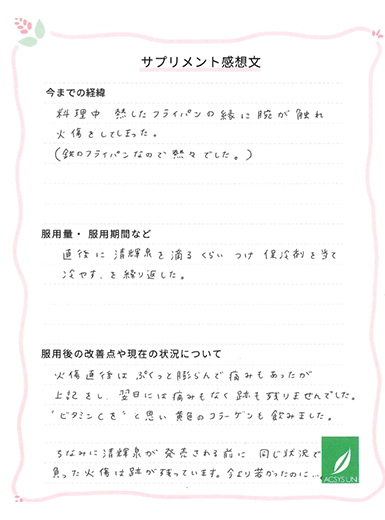 サプリメント感想文
今までの経緯
料理中 熱したフライパンの縁に腕が触れ
火傷をしてしまった。
(鉄のフライパンなので熱々でした。)
服用量・服用期間など
直後に清輝泉を滴るくらいつけ 保冷剤を当て
冷やす、を繰り返した。
服用後の改善点や現在の状況について
火傷直後は ぷくっと膨らんで痛みもあったが
上記をし、翌日には痛みもなく跡も残りませんでした。
"ビタミンCを"と思い黄色のコラーゲンも飲みました。
ちなみに清輝泉が発売される前に 同じ状況で
負った火傷は跡が残っています。今より若かったのに…。
ACSYS UN